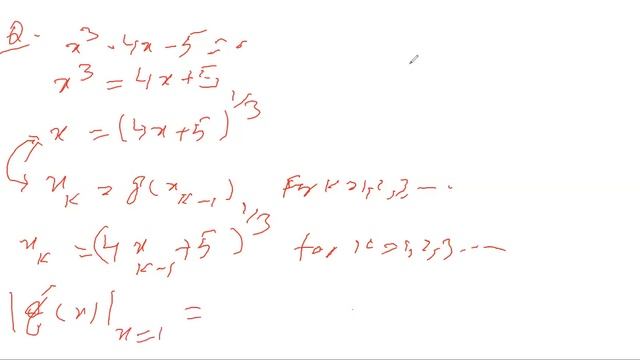 Q. x³ - 4x - 5 = 0
x³ = 4x + 5
x = (4x + 5)^1/3
x_K = g(x_K-1) For K = 1, 2, 3, ---
x_K = (4x_K-1 + 5)^1/3 for K = 1, 2, 3 ----
|g'(x)|_x=1 =